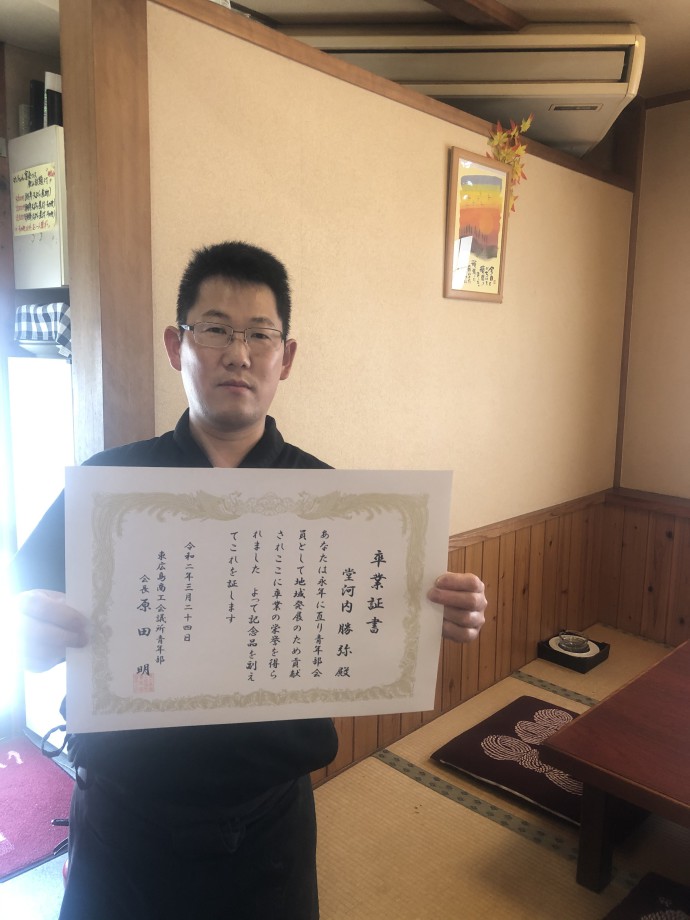 卒業証書
堂河内勝弥殿
あなたは永年に亘り青年部会
員として地域発展のため貢献
されここに卒業の栄誉を得ら
れました よって記念品を副え
てこれを証します
令和二年三月二十四日
東広島商工会議所青年部
会長 原田 明